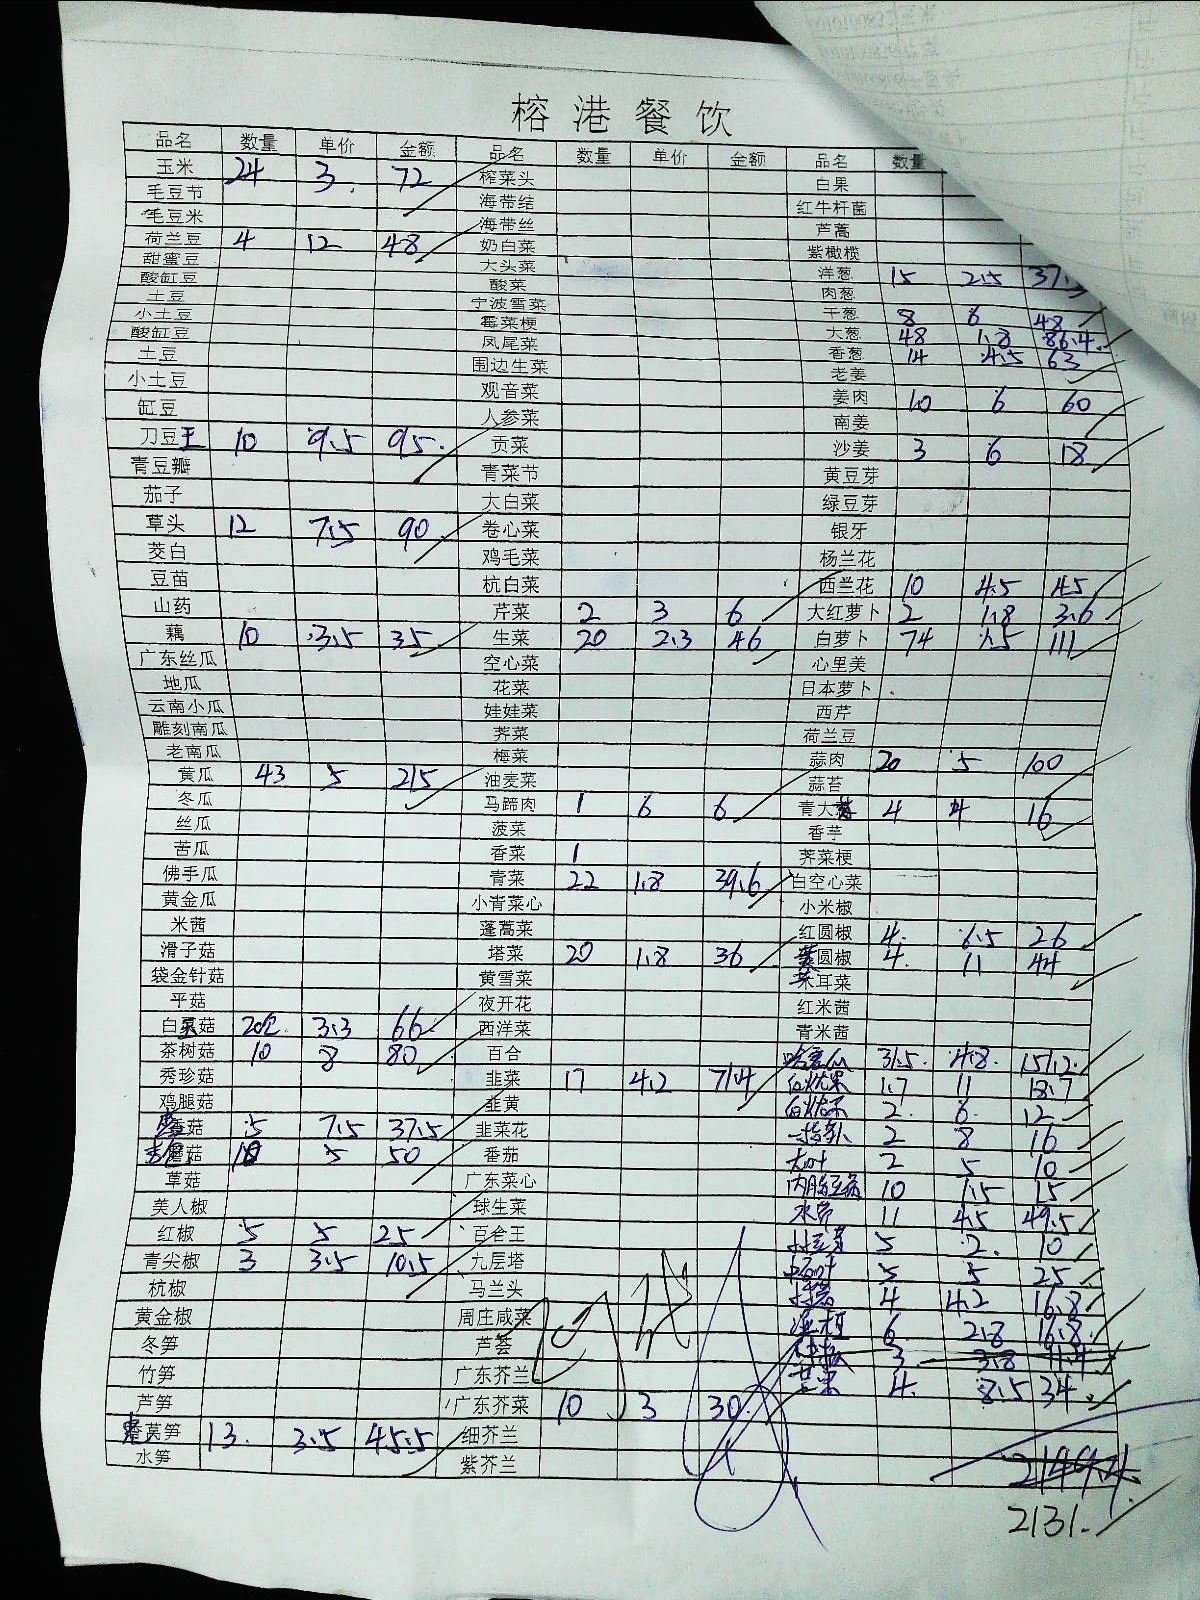 榕港餐饮
品名 数量 单价 金额 品名 数量 单价 金额 品名 数量
玉米 24 3. 72 榨菜头 白果
毛豆节 海带结 红牛杆菌
毛豆米 海带丝 芦蒿
荷兰豆 4 12 48 奶白菜 紫橄榄
甜蜜豆 大头菜 洋葱 15 2.5 37.5
酸缸豆 酸菜 肉葱
土豆 宁波雪菜 干葱 8 6 48
小土豆 霉菜梗 大葱 48 1.8 86.4
酸缸豆 凤尾菜 香葱 14 4.5 63
土豆 围边生菜 老姜
小土豆 观音菜 姜肉 10 6 60
缸豆 人参菜 南姜
刀豆王 10 9.5 95. 贡菜 沙姜 3 6 18
青豆瓣 青菜节 黄豆芽
茄子 大白菜 绿豆芽
草头 12 7.5 90 卷心菜 银牙
茭白 鸡毛菜 杨兰花
豆苗 杭白菜 西兰花 10 4.5 45
山药 芹菜 2 3 6 大红萝卜 2 1.8 3.6
藕 10 3.5 35 生菜 20 2.3 46 白萝卜 74 1.5 111
广东丝瓜 空心菜 心里美
地瓜 花菜 日本萝卜
云南小瓜 娃娃菜 西芹
雕刻南瓜 荠菜 荷兰豆
老南瓜 梅菜 蒜肉 20 5 100
黄瓜 43 5 215 油麦菜 蒜苔
冬瓜 马蹄肉 1 6 6 青大 4 4 16
丝瓜 菠菜 香芋
苦瓜 香菜 1 荠菜梗
佛手瓜 青菜 22 1.8 39.6 白空心菜
黄金瓜 小青菜心 小米椒
米茜 蓬蒿菜 红圆椒 4. 6.5 26
滑子菇 塔菜 20 1.8 36 圆椒 4. 11 44
袋金针菇 黄雪菜 木耳菜
平菇 夜开花 红米茜
白菇 20包 3.3 66 西洋菜 青米茜
茶树菇 10 8 80 百合 哈蜜瓜 31.5. 4.8. 151.2.
秀珍菇 韭菜 17 4.2 71.4 1.7 11 18.7
鸡腿菇 韭黄 2. 6. 12
香菇 5 7.5 37.5 韭菜花 2 8 16
蘑菇 10 5 50 番茄 2 5 10
草菇 广东菜心 内脂豆腐 10 1.5 15
美人椒 球生菜 水笋 11 4.5 49.5
红椒 5 5 25 百合王 5 2. 10
青尖椒 3 3.5 10.5 九层塔 5 5 25
杭椒 马兰头 4 4.2 16.8
黄金椒 周庄咸菜 6 2.8 16.8
冬笋 芦荟 3 3.8 11.4
竹笋 广东芥兰 芒果 4. 8.5 34
芦笋 广东芥菜 10 3 30.
莴笋 13. 3.5 45.5 细芥兰
水笋 紫芥兰
2131.